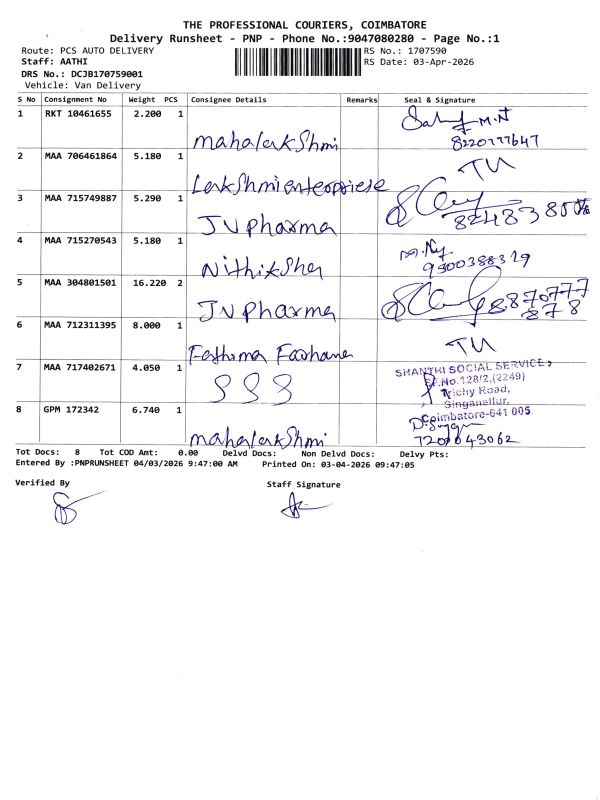 THE PROFESSIONAL COURIERS, COIMBATORE
Delivery Runsheet - PNP - Phone No.:9047080280 - Page No.:1
Route: PCS AUTO DELIVERY RS No.: 1707590
Staff: AATHI RS Date: 03-Apr-2026
DRS No.: DCJB170759001
Vehicle: Van Delivery
S No Consignment No Weight PCS Consignee Details Remarks Seal & Signature
1 RKT 10461655 2.200 1 mahalakshmi M.N
8220777647
2 MAA 706461864 5.180 1 Lakshmi enterpriese TU
3 MAA 715749887 5.290 1 JV Pharma
4 MAA 715270543 5.180 1 Nithiksha
9500388319
5 MAA 304801501 16.220 2 JV Pharma
878
6 MAA 712311395 8.000 1 Fathima Farhana TU
7 MAA 717402671 4.050 1 SSS
SHANTHI SOCIAL SERVICE,
S.F.No.128/2,(2249)
Trichy Road,
Singanallur,
Coimbatore-641 005.
8 GPM 172342 6.740 1 mahalakshmi
Tot Docs: 8 Tot COD Amt: 0.00 Delvd Docs: Non Delvd Docs: Delvy Pts:
Entered By :PNPRUNSHEET 04/03/2026 9:47:00 AM Printed On: 03-04-2026 09:47:05
Verified By Staff Signature